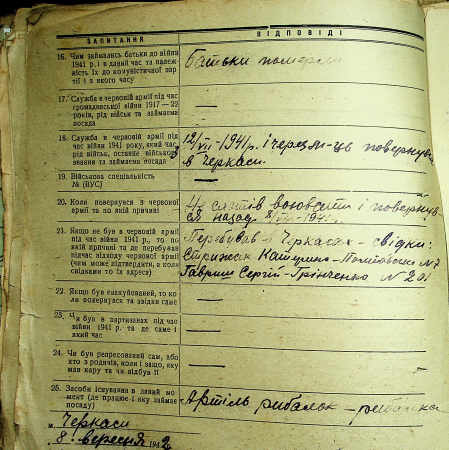 ЗАПИТАННЯ ВІДПОВІДІ
16. Чим займались батьки до війни
1941 р. і в даний час та належ-
ність їх до комуністичної пар-
тії і в якого часу
Батьки померли
17. Служба в червоній армії під час
громадянської війни 1917—22
років, рід військ та займаєма
посада
—
18. Служба в червоній армії під
час війни 1941 року, який час,
рід військ, останнє військове
звання та займаєма посада
12/VII-1941 р. і через м-ць повернувся
в Черкаси
19. Військова спеціальність
№ (ВУС)
—
20. Коли повернувся з червоної
армії та по якій причині
воювати і повернув
ся назад 8/VIII-1941 р.
21. Якщо не був в червоній армії
під час війни 1941 р., то по
якій причині та де перебував
підчас відходу червоної армії
(чим може підтвердити, в кого
свідками то їх адреса)
Перебував в Черкасах - свідки:
Стрижак Катерина - Полтавська № 7
Гавриш Сергій - Грінченко № 201
22. Якщо був евакуйований, то ко
ли повернувся та звідки саме
—
23. Чи був в партизанах під час
війни 1941 р. та де саме і
який час
—
24. Чи був репресований сам, або
хто з родичів, коли і защо, яку
мав кару та чи відбув її
—
25. Засоби існування в даний мо
мент (де працює і яку займає
посаду)
Артіль рибалок - рибалка
м. Черкаси
8. вересня 1942